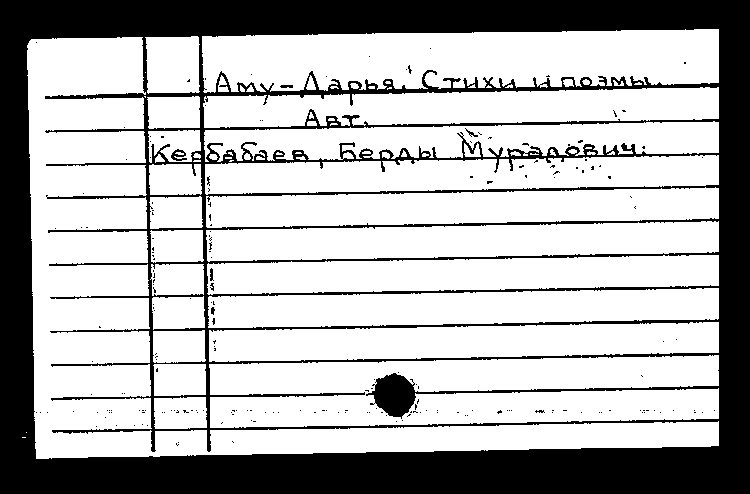 Аму-Дарья. Стихи и поэмы.
Авт.
Кербабаев, Берды Мурадович.